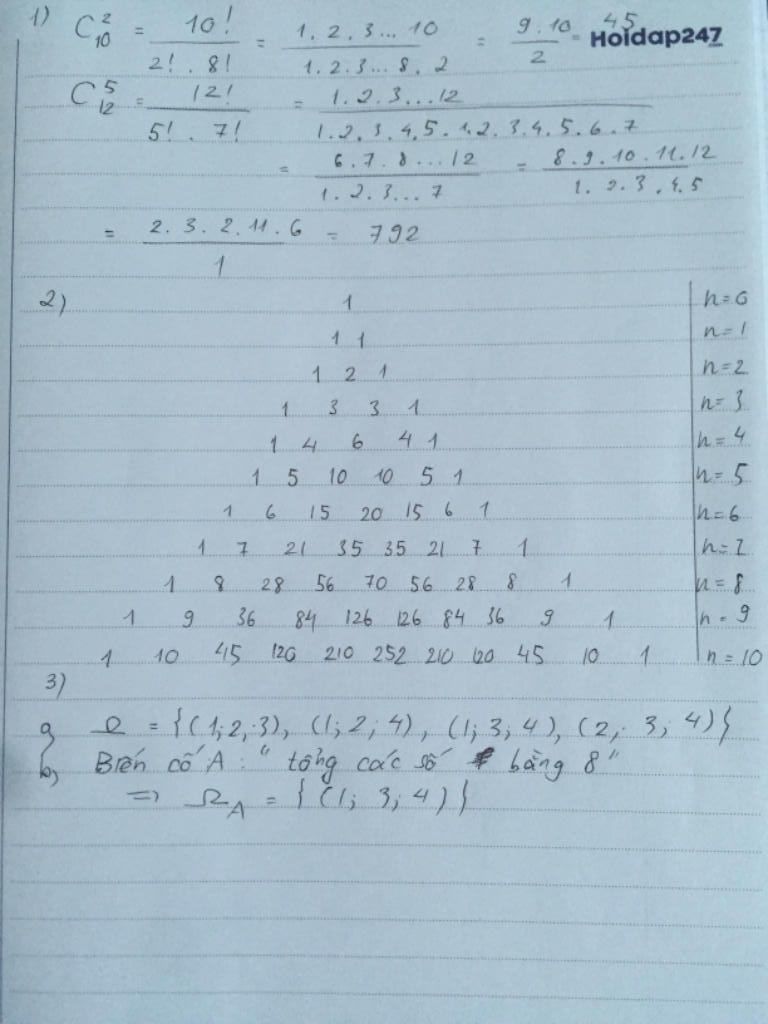 1) C²₁₀ = 10! / 2! . 8! = 1. 2. 3... 10 / 1. 2. 3... 8. 2 = 9.10 / 2 = 45
Hoidap247
C⁵₁₂ = 12! / 5! . 7! = 1. 2. 3...12 / 1. 2. 3. 4. 5. 1. 2. 3. 4. 5. 6. 7
= 6. 7. 8 ...12 / 1. 2. 3... 7 = 8. 9. 10. 11. 12 / 1. 2. 3. 4. 5
= 2. 3. 2. 11. 6 / 1 = 792
2) 1 n=0
1 1 n=1
1 2 1 n=2
1 3 3 1 n=3
1 4 6 4 1 n=4
1 5 10 10 5 1 n=5
1 6 15 20 15 6 1 n=6
1 7 21 35 35 21 7 1 n=7
1 8 28 56 70 56 28 8 1 n=8
1 9 36 84 126 126 84 36 9 1 n=9
1 10 45 120 210 252 210 120 45 10 1 n=10
3)
a) Ω = {(1; 2; 3), (1; 2; 4), (1; 3; 4), (2; 3; 4)}
b) Biến cố A: "tổng các số bằng 8"
=> Ω_A = {(1; 3; 4)}